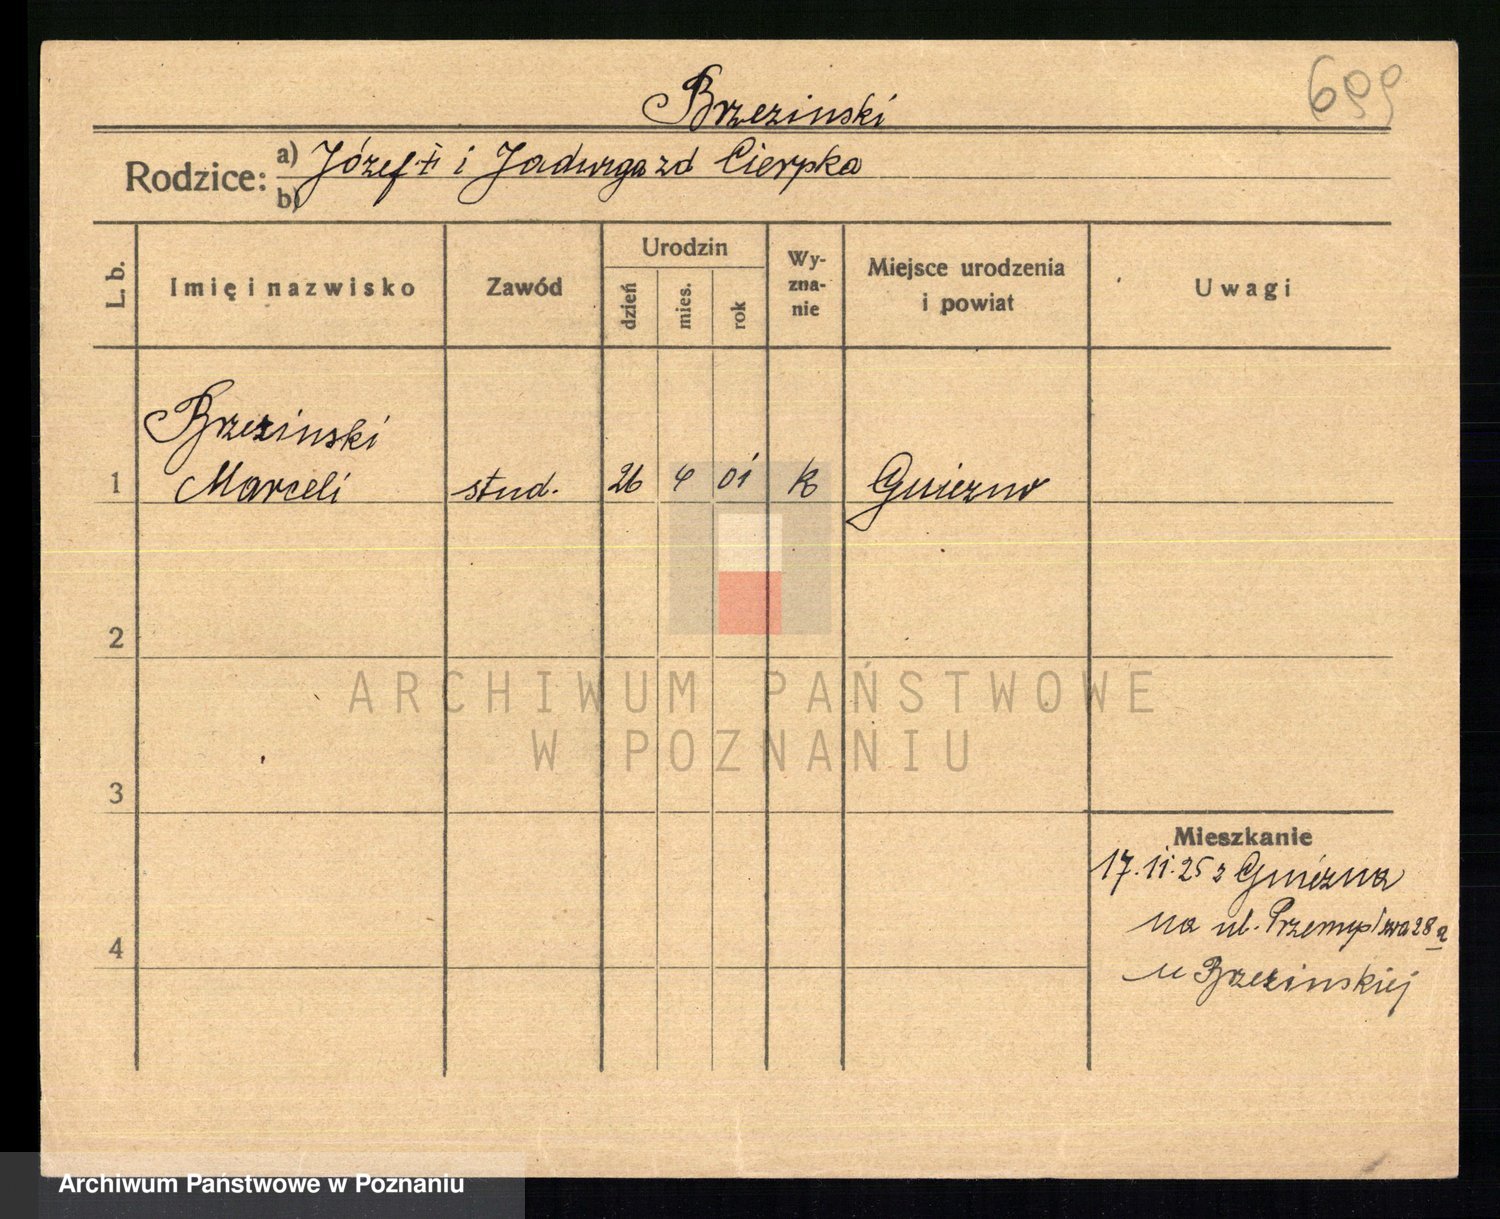 699
Brzezinski
Rodzice: a) Józef † i Jadwiga zd Cierpka
b)
L. b.
Imię i nazwisko
Zawód
Urodzin
dzień
mies.
rok
Wy-
zna-
nie
Miejsce urodzenia
i powiat
Uwagi
Brzezinski
1 Marceli stud. 26 4 01 k Gniezno
2
ARCHIWUM PAŃSTWOWE
W POZNANIU
3
Mieszkanie
17.11.25 z Gniezna
na ul. Przemysłowa 28a
4
u Brzezinskiej
Archiwum Państwowe w Poznaniu